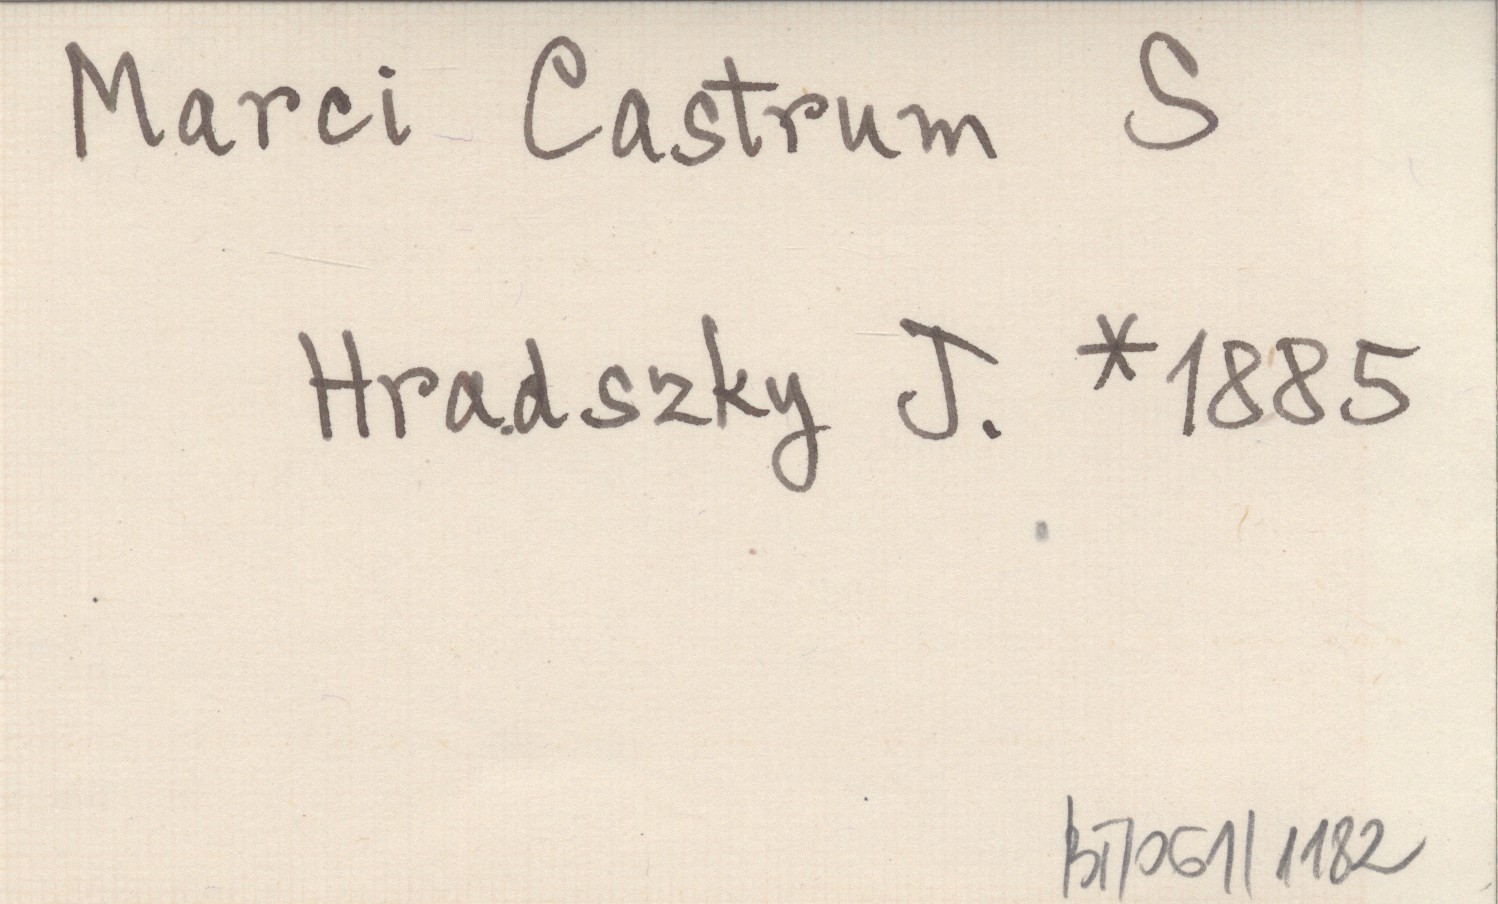 Marci Castrum S
Hradszky J. *1885
BT/061/1182